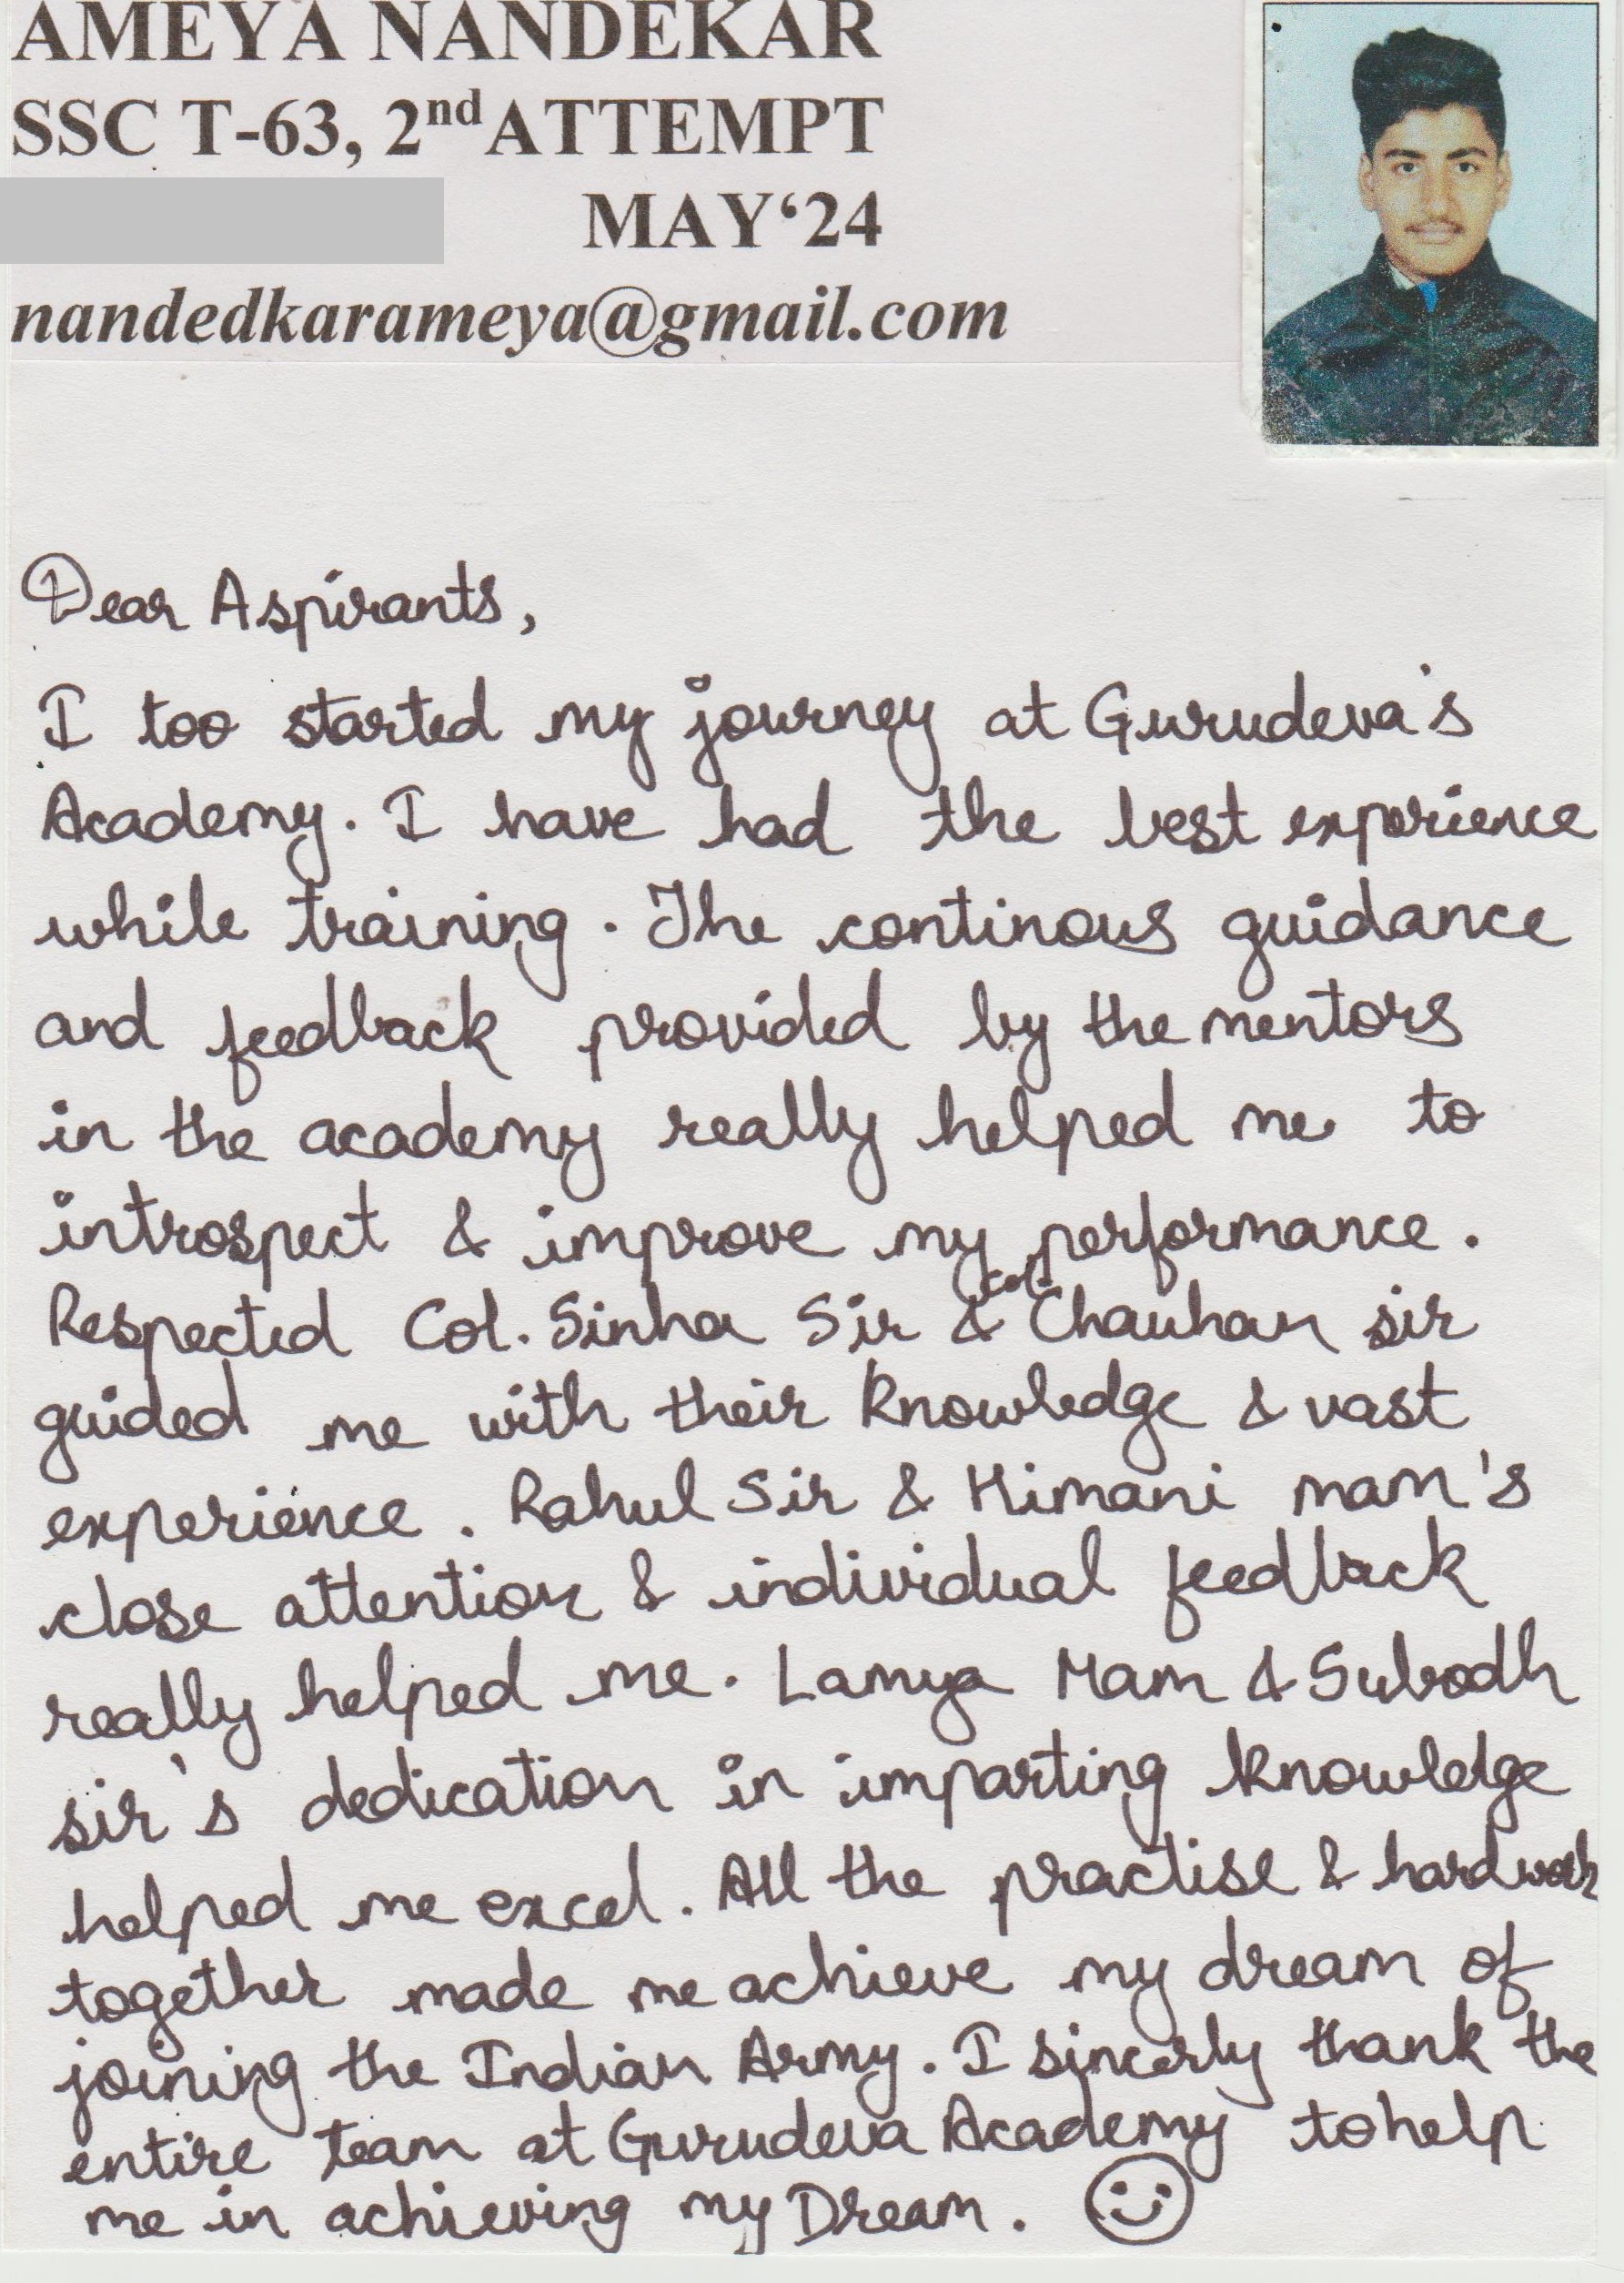 AMEYA NANDEKAR
SSC T-63, 2nd ATTEMPT
MAY‘24
nandedkarameya@gmail.com
Dear Aspirants,
I too started my journey at Gurudeva's
Academy. I have had the best experience
while training. The continous guidance
and feedback provided by the mentors
in the academy really helped me to
introspect & improve my performance.
Respected Col. Sinha Sir & Col. Chauhan sir
guided me with their knowledge & vast
experience. Rahul Sir & Himani mam's
close attention & individual feedback
really helped me. Lamya Mam & Subodh
sir's dedication in imparting knowledge
helped me excel. All the practise & hardwork
together made me achieve my dream of
joining the Indian Army. I sincerly thank the
entire team at Gurudeva Academy to help
me in achieving my Dream.